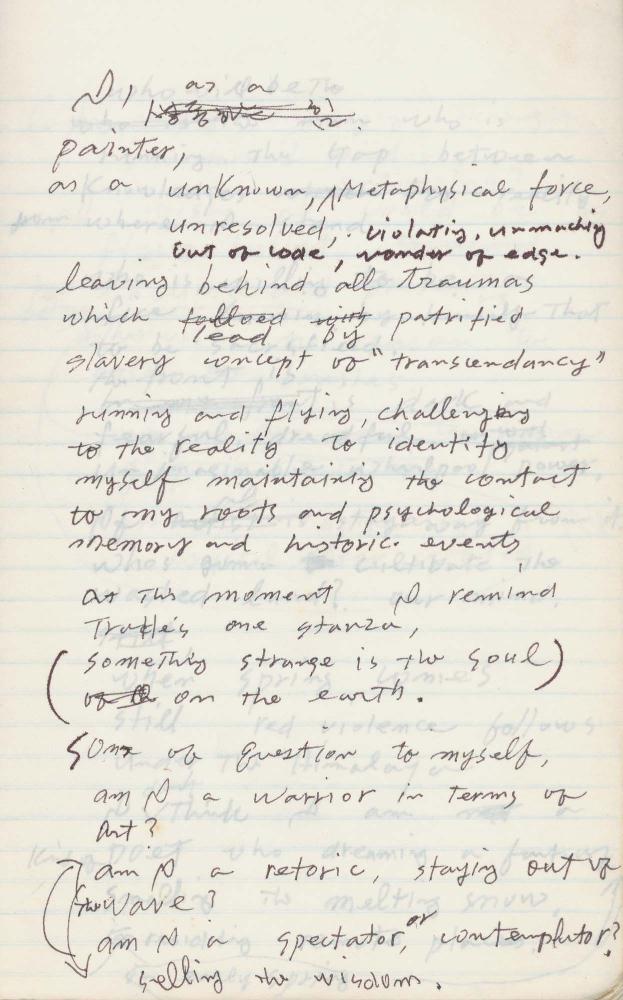 I, as a
painter,
as a unknown, Metaphysical force,
unresolved, violatig, unmaching
out of code, wonder of edge.
leaving behind all traumas
which lead by patrified
slavery concept of "transcendancy"
running and flying, challenging
to the reality to identify
myself maintainig the contact
to my roots and psychological
memory and historic events
at this moment I remind
Trakle's one stanza,
(something strange is the soul)
on the earth.
Some of question to myself,
am I a warrior in terms of
Art?
am I a retoric, staying out of
the wave?
am I a spectator, or contemplator?
selling the wisdom.